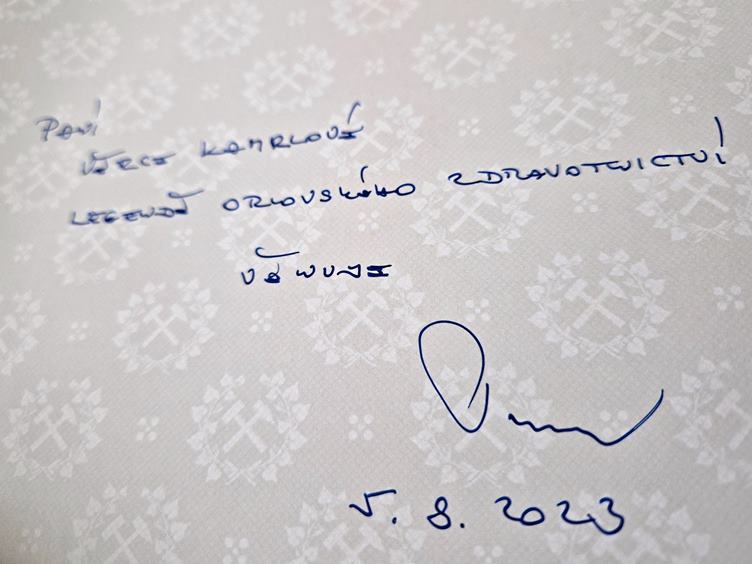 Paní
Věrce Kamrlové
legendě orlovského zdravotnictví
věnuje
5. 8. 2023